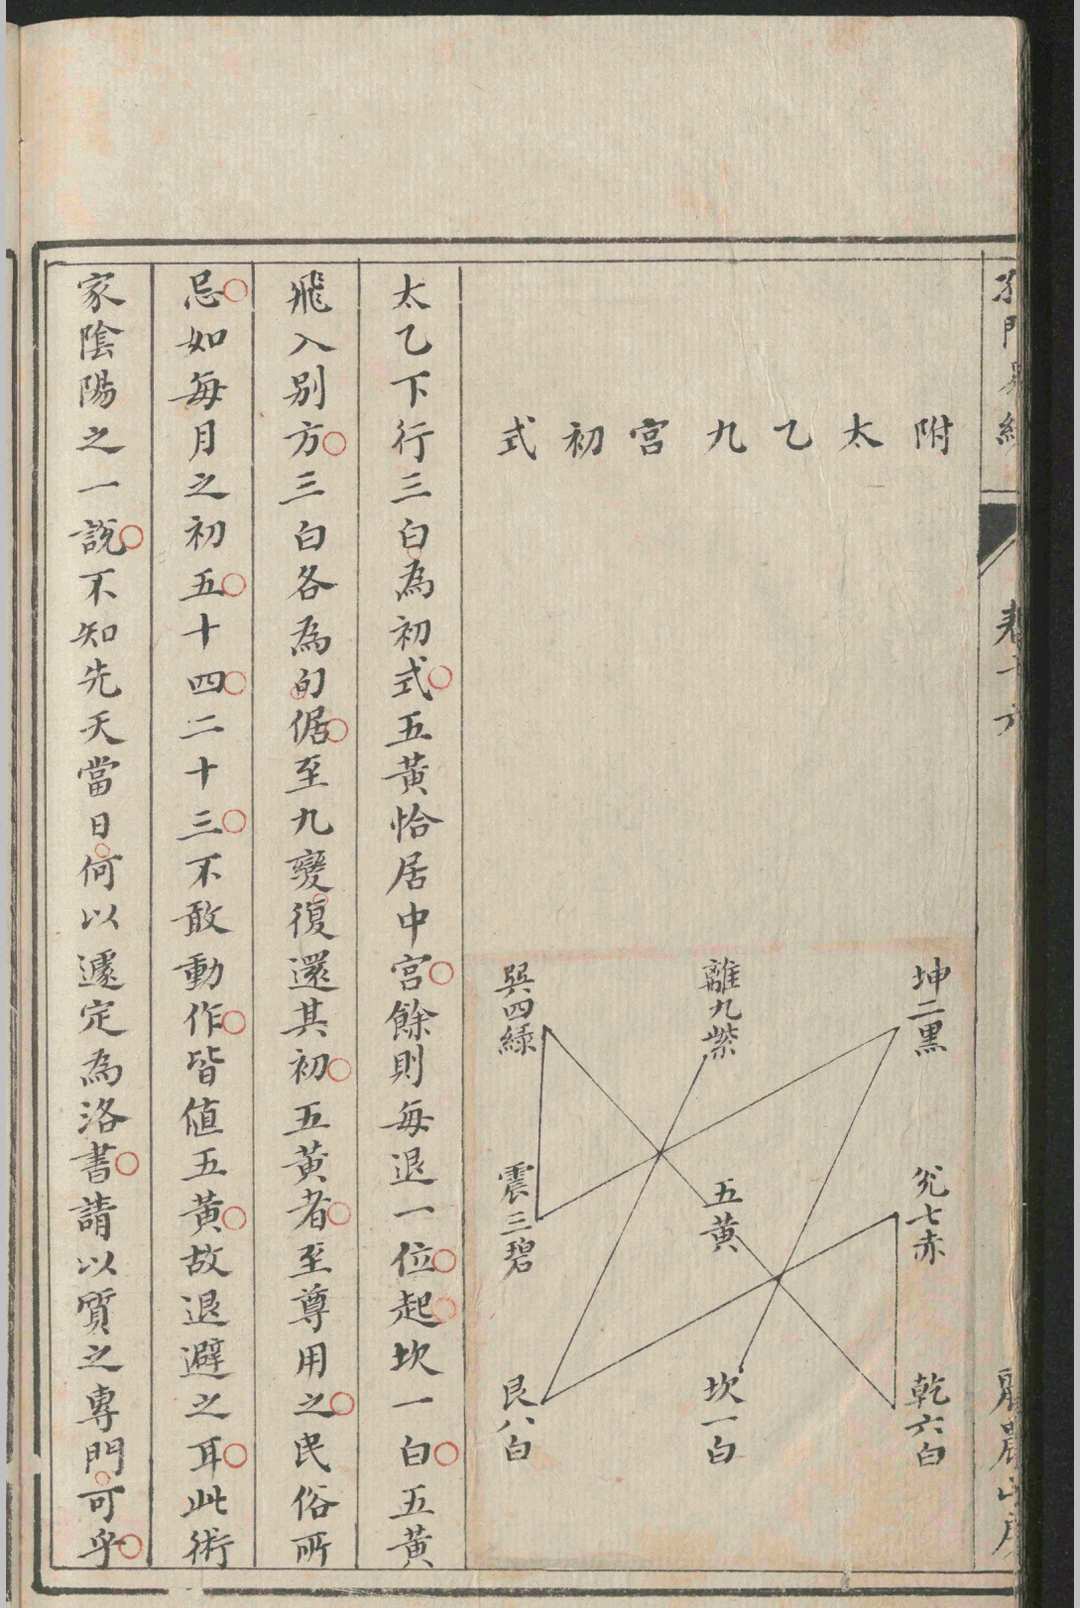 附太乙九宮初式
坤二黑
離九紫
巽四綠
兊七赤
五黃
震三碧
乾六白
坎一白
艮八白
太乙下行三白為初式五黃恰居中宮餘則每退一位起坎一白五黃
飛入別方三白各為旬倨至九變復還其初五黃者至尊用之民俗所
忌如每月之初五十四二十三不敢動作皆值五黃故退避之耳此術
家陰陽之一說不知先天當日何以遽定為洛書請以質之專門可乎
卷十六